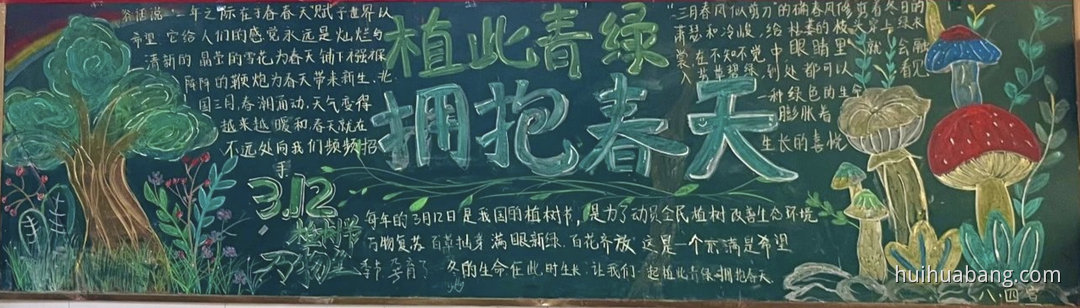 俗话说,一年之际在于春春天"赋予世界以
希望,它给人们的感觉永远是灿烂与
清新的,晶莹的雪花为春天铺下强保
阵阵的鞭炮为春天带来新生,北
国三月,春潮涌动,天气变得
越来越暖和,春天就在
不远处向我们频频招
手
植此青绿
拥抱春天
"三月春风似剪刀"的确春风修剪着冬日的
萧瑟和冷峻,给朴素的枝头穿上绿衣
在不知不觉中眼睛里就会融
入芳草碧绿,到处都可以看见
一种绿色的生命
膨胀着
生长的喜悦
3.12
植树节
万物生
每年的3月12日是我国的植树节,是为了动员全民植树改善生态环境
万物复苏 百草抽芽 满眼新绿 百花齐放 这是一个充满是希望
季节 孕育了 冬的生命在此时生长,让我们一起植此青绿拥抱春天
huihuabang.com
八四